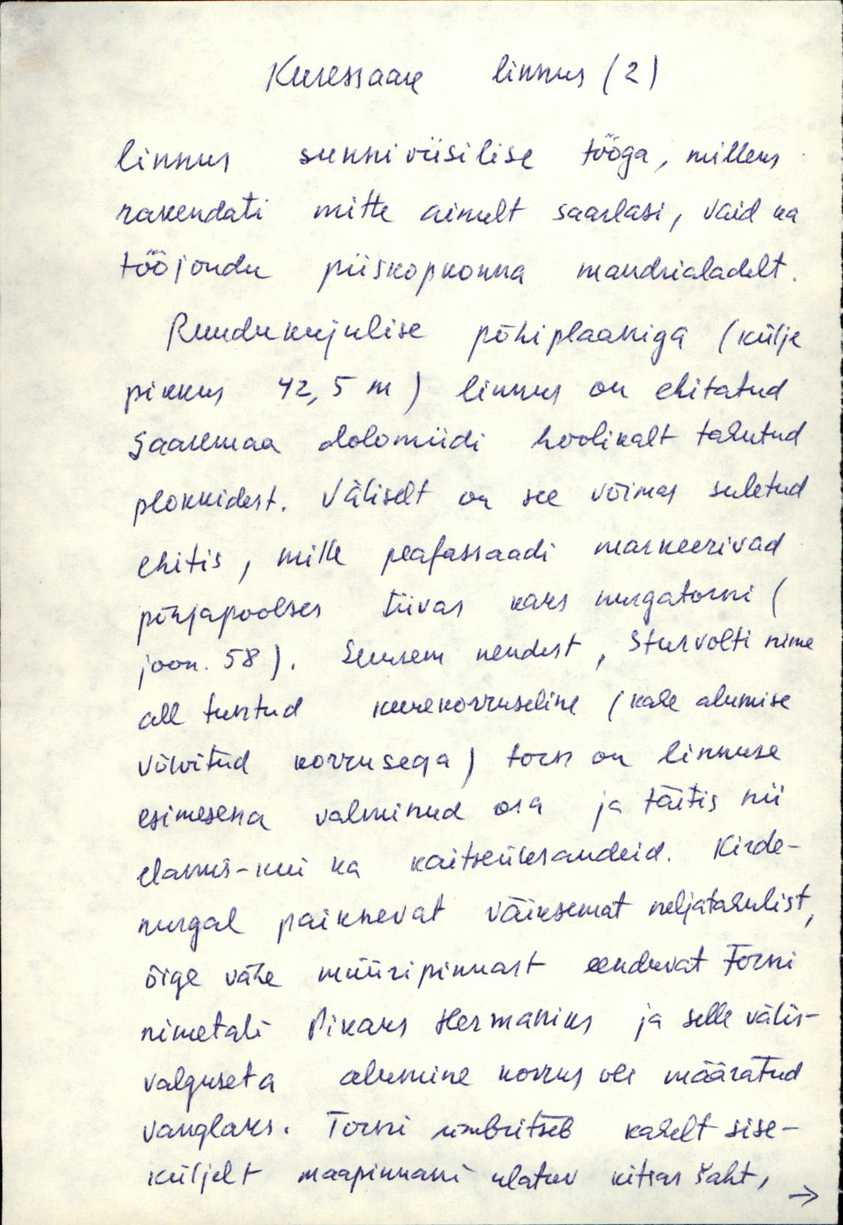 Kuressaare linnus (2)
linnus sunniviisilise tööga, milleks
rakendati mitte ainult saarlasi, vaid ka
tööjõudu piiskopkonna mandrialadelt.
Ruudukujulise põhiplaaniga (külje
pikkus 42,5 m) linnus on ehitatud
Saaremaa dolomiidi hoolikalt tahutud
plokkidest. Väliselt on see võimas suletud
ehitis, mille peafassaadi markeerivad
põhjapoolses tiivas kaks nurgatorni (
joon. 58). Suurem nendest, Sturvolti nime
all tuntud kuuekorruseline (kahe alumise
võlvitud korrusega) torn on linnuse
esimesena valminud osa ja täitis nii
elamis-kui ka kaitseülesandeid. Kirde-
nurgal paiknevat väiksemat neljatahulist,
õige vähe müüripinnast eenduvat torni
nimetati Pikaks Hermaniks ja selle välis-
valguseta alumine korrus oli määratud
vanglaks. Torni ümbritseb kahelt sise-
küljelt maapinnani ulatuv kitsas šaht,
→